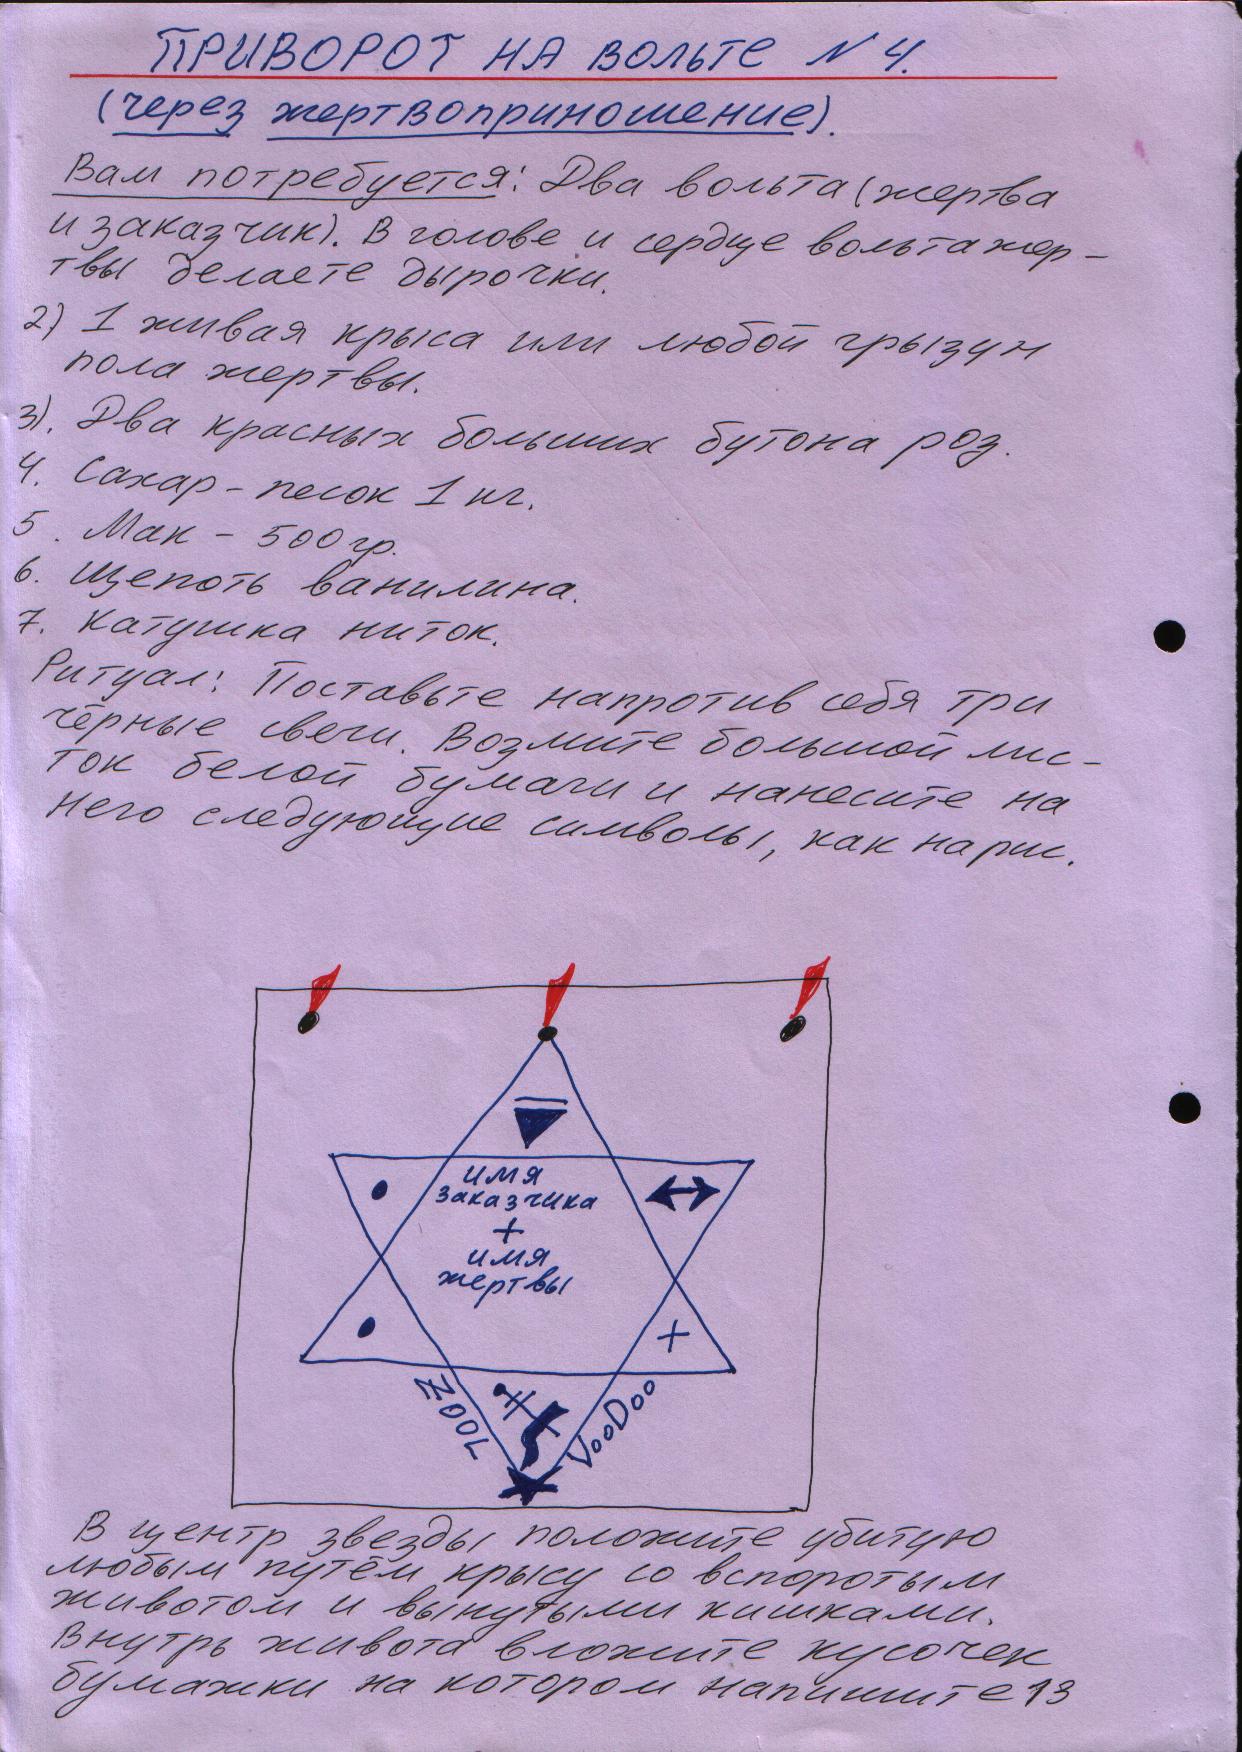 ПРИВОРОТ НА ВОЛЬТЕ №4.
(через жертвоприношение).
Вам потребуется: Два вольта (жертва
и заказчик). В голове и сердце вольта жер-
твы делаете дырочки.
2) 1 живая крыса или любой грызун
пола жертвы.
3). Два красных больших бутона роз.
4. Сахар-песок 1 кг.
5. Мак - 500 гр.
6. Щепоть ванилина.
7. Катушка ниток.
Ритуал: Поставьте напротив себя три
чёрные свечи. Возмите большой лис-
ток белой бумаги и нанесите на
него следующие символы, как на рис.
имя
заказчика
+
имя
жертвы
ZOOL
VooDoo
В центр звезды положите убитую
любым путём крысу со вспоротым
животом и вынутыми кишками.
Внутрь живота вложите кусочек
бумажки на котором напишите 13